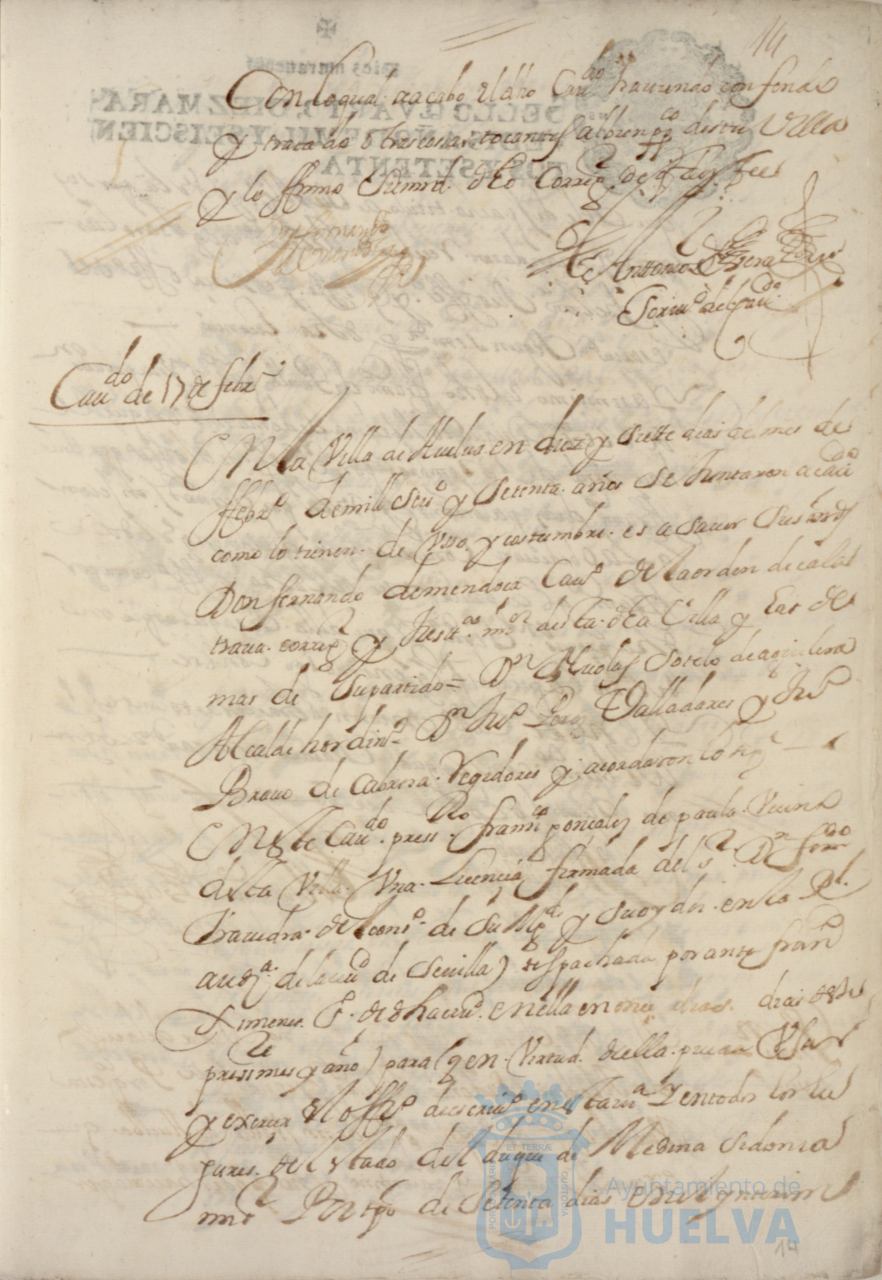 14
Con lo qual se acabo el dho Cauᵈᵒ hauiendo conferido
y tratado otras cosas tocantes al bien pᶜᵒ desta Villa
y lo firmo su md. dho Correg.ᵒʳ de q doy fee
Antonio
Escriuᵒ del Cauᵈᵒ
Cauᵈᵒ de 17 de febrᵒ
En la Villa de Huelua en diez y siete dias del mes de
ffebrᵒ de mill seisᵒ y setenta años se juntaron a cauᵈᵒ
como lo tienen de Vso y costumbre es a sauer sus mrds
Don fernando de mendoça Cauᵒ de la orden de cala
traua correg.ᵒʳ y Justᵃ mᵒʳ desta dha Villa y las de
mas de su partido = Dⁿ Nicolas Sotelo de aguilera
Alcalde hordinᵒ Dⁿ Juᵒ Valladares y Juᵒ
Brauo de Cabrera Regidores y acordaron lo sigᵗᵉ
En este Cauᵈᵒ pressᵗᵒ franᶜᵒ gonçales de paula Vecino
desta Villa Vna Licencia firmada del sʳ Dⁿ ferⁿᵈᵒ
Saauedra del consᵒ de su Mgᵈ y su oydor en la Rˡ
audᵃ de la ciuᵈ de Seuilla) despachada por ante franᶜᵒ
Ximenes Eᵒ de dha ciuᵈ en ella en onçe dias deste
pressᵗᵉ mes y año) para q en Virtud della pueda Vsar
y exerçer el offᵒ de escriuᵒ en esta Vᵃ y en todos los lu
gares del estado del duque de Medina Sidonia
mᵒʳ Por tpᵒ de Setenta dias en el ynterim
Ayuntamiento de
HUELVA
14